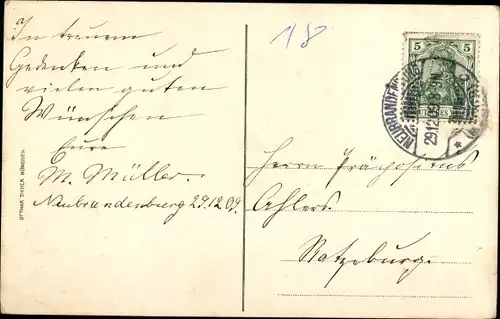 In treuem
Gedenken und
vielen guten
Wünschen
Eure
M. Müller.
Neubrandenburg 29.12.09.
18
5 5
NEUBRANDENBURG
29.12.09.
Herrn Präpositus
Ahlers
Ratzeburg.
OTTMAR ZIEHER, MÜNCHEN